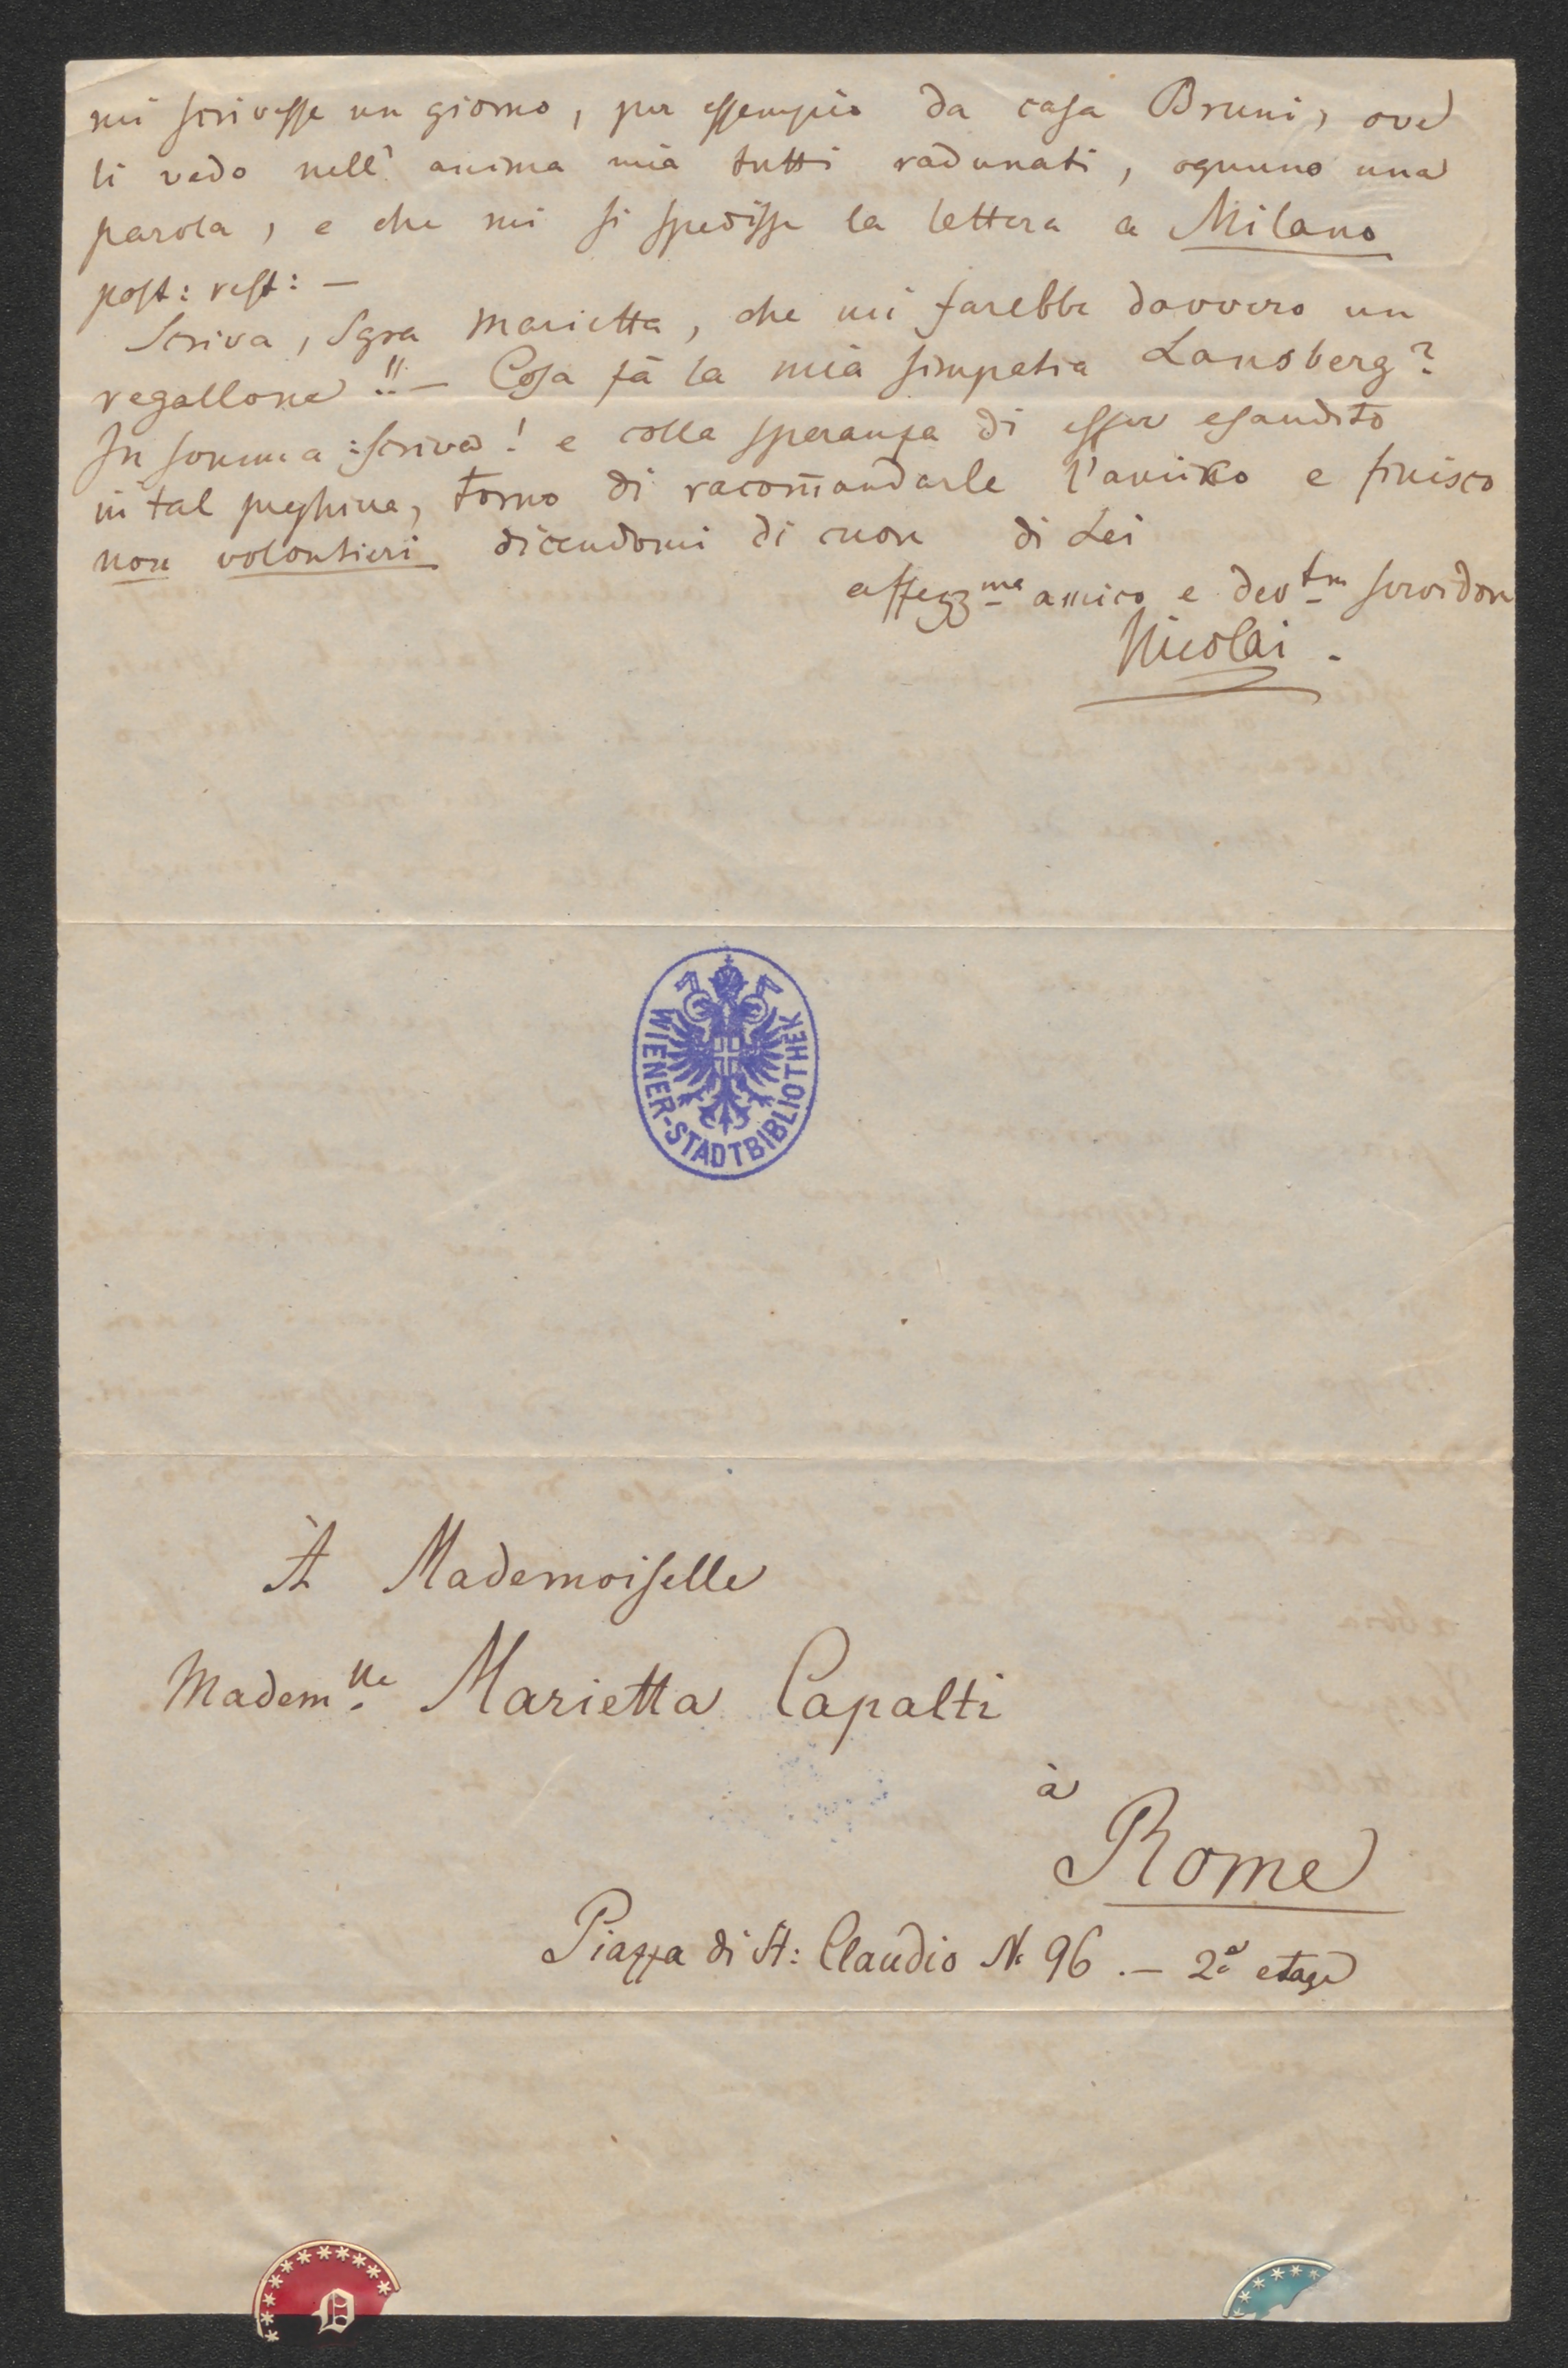 mi scrivesse un giorno, per essempio da casa Bruni, ove
li vedo nell' anima mia tutti radunati, ognuno una
parola, e che mi si spedisse la lettera a Milano
post: rest: —
Scriva, Sgra Marietta, che mi farebbe davvero un
regallone!! — Cosa fà la mia simpatia Lansberg?
In somma: scriva! e colla speranza di esser esaudito
in tal preghiera, torno di racom̄andarle l'amico e finisco
non volontieri dicendomi di cuore di Lei
affezzmo amico e devtm servidore
Nicolai.
WIENER-STADTBIBLIOTHEK
À Mademoiselle
Ademlle Marietta Capalti
à
Rome
Piazza di St: Claudio No 96. — 2a etage
D